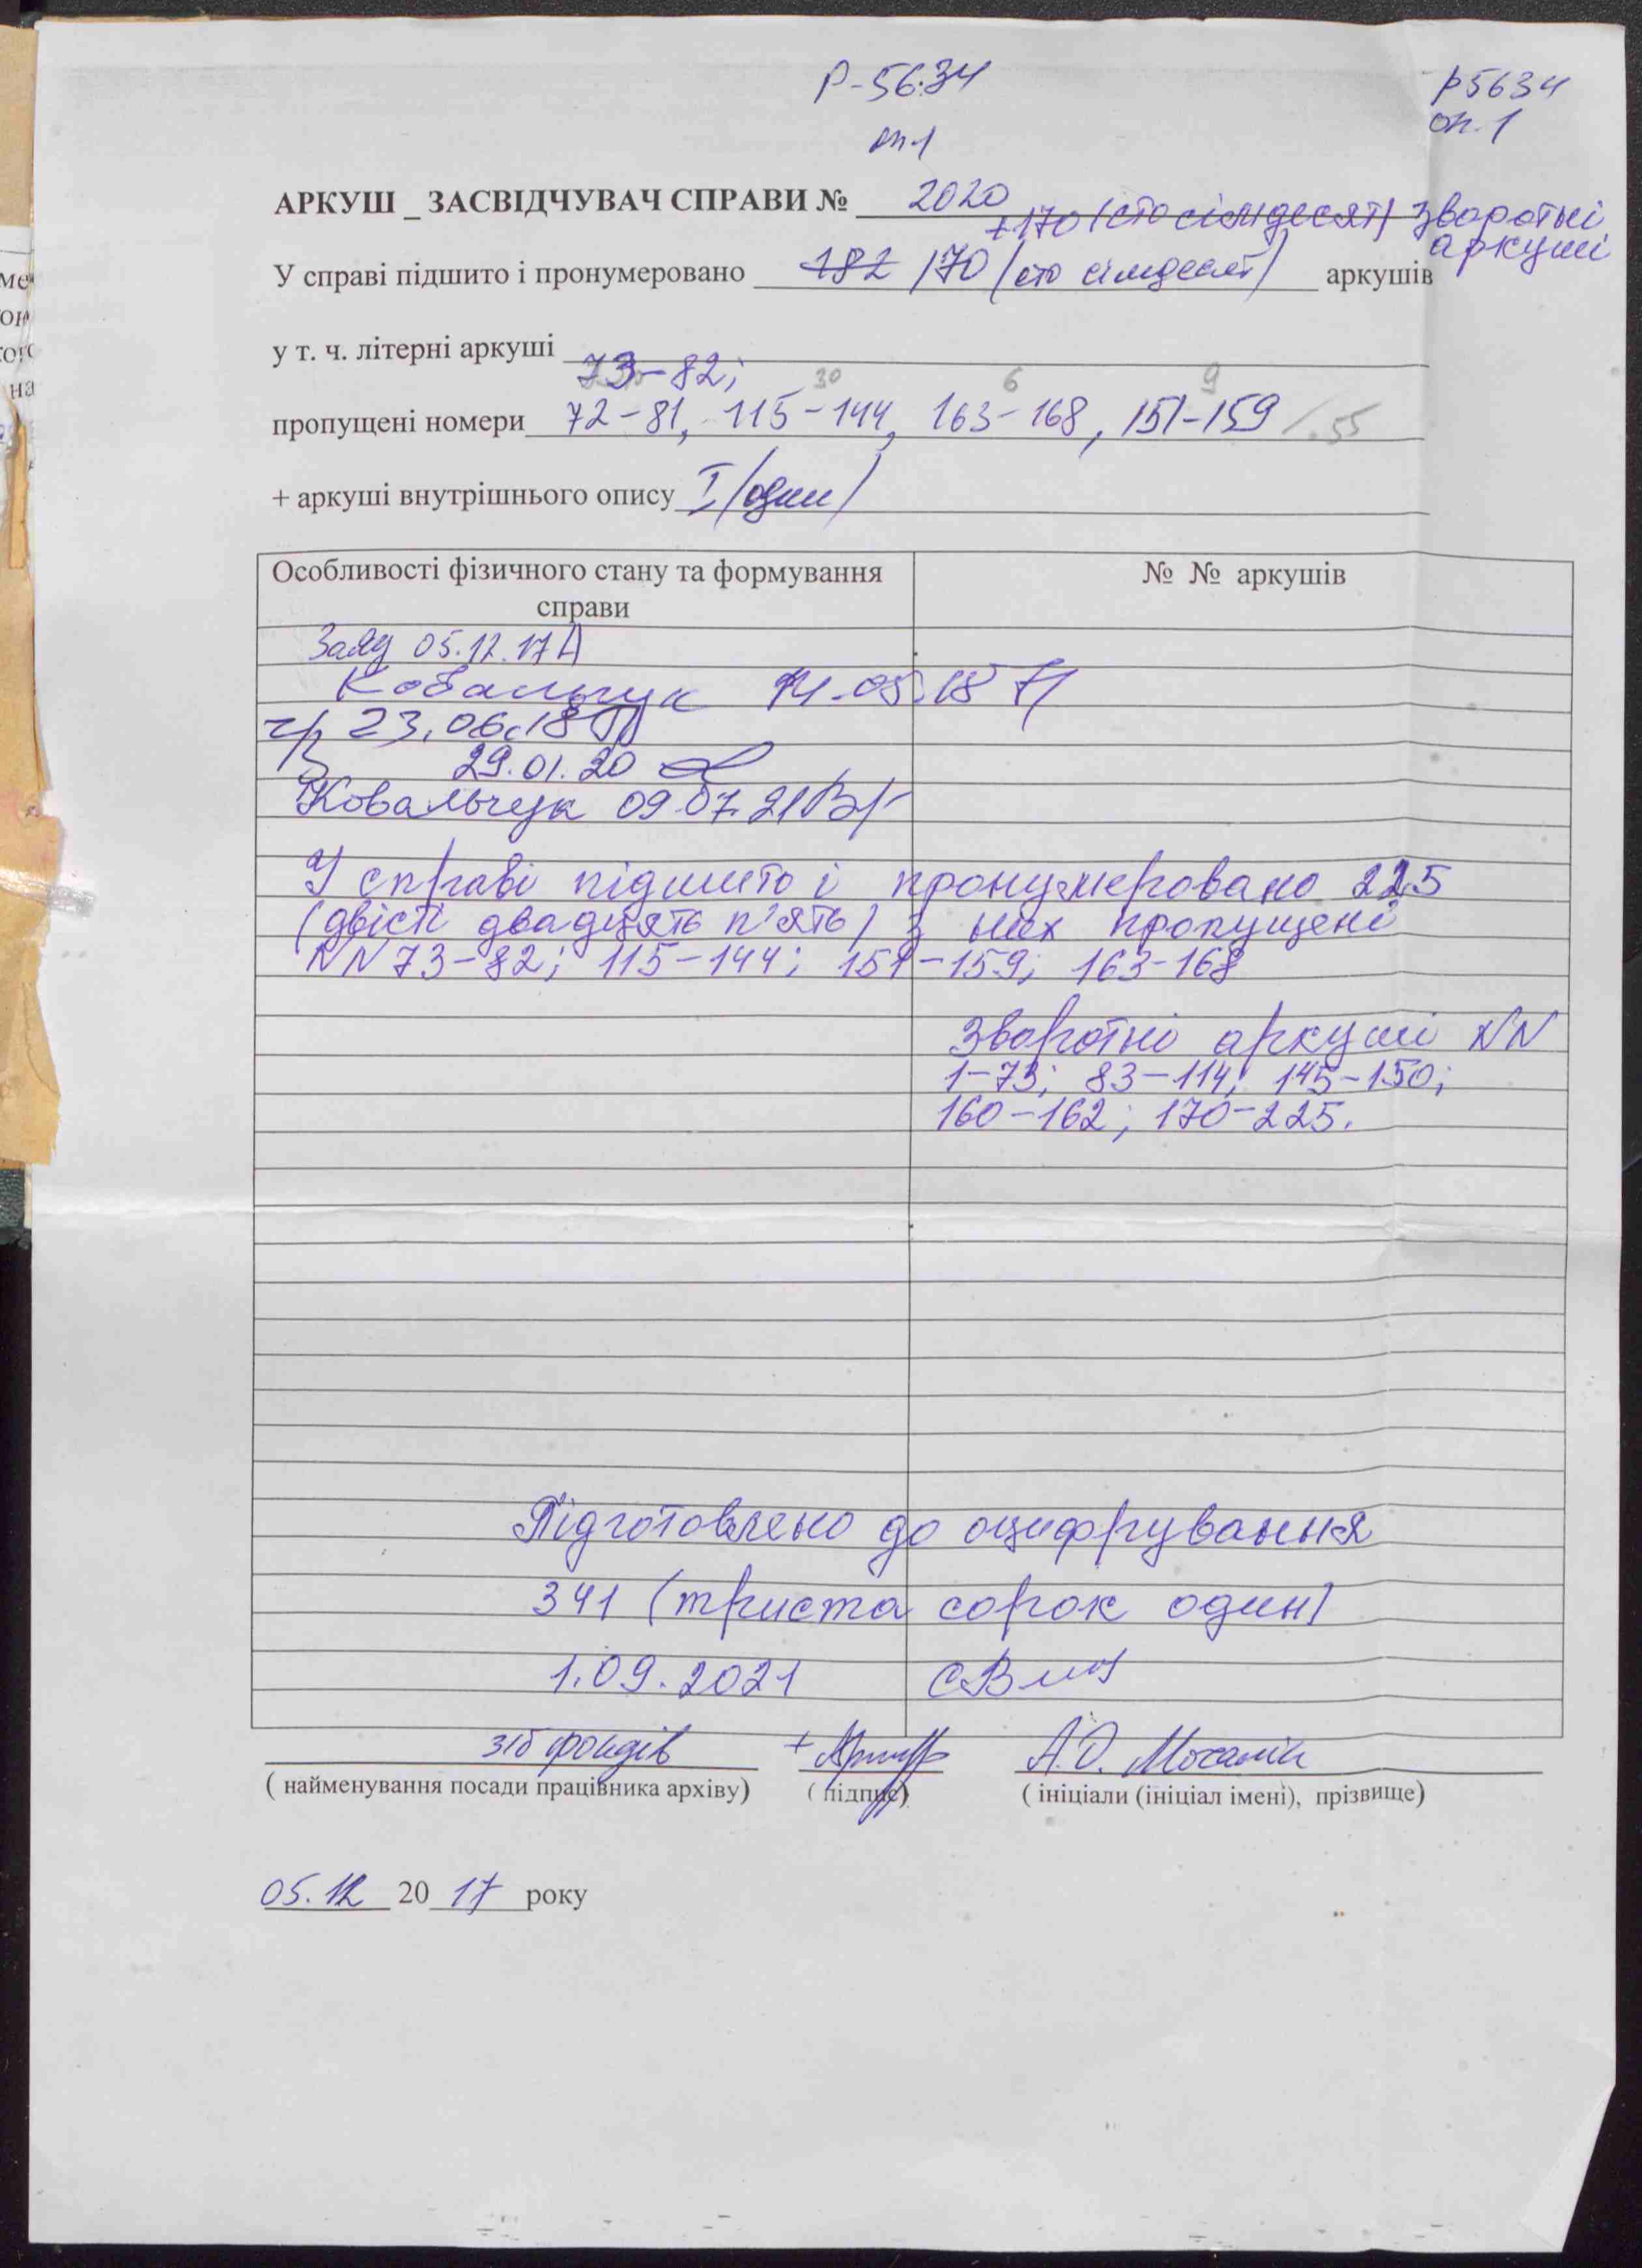 Р-5634
р5634
оп.1
оп.1
АРКУШ _ ЗАСВІДЧУВАЧ СПРАВИ № 2020
+170 (сто сімдесят) зворотні
аркуші
У справі підшито і пронумеровано 182 170 (сто сімдесят) аркушів
у т. ч. літерні аркуші
73-82;
30 6 9
пропущені номери 72-81, 115-144, 163-168, 151-159 /.55
+ аркуші внутрішнього опису I (один)
Особливості фізичного стану та формування
справи
№ № аркушів
05.12.17
Ковальчук 14.05.18
23.06.18
29.01.20
Ковальчук 09.07.21
У справі підшито і пронумеровано 225
(двісті двадцять п'ять) з них пропущені
NN 73-82; 115-144; 151-159; 163-168
Зворотні аркуші NN
1-73; 83-114; 145-150;
160-162; 170-225.
Підготовлено до оцифрування
341 (триста сорок один)
1.09.2021
зб фондів А.О.
( найменування посади працівника архіву) ( підпис) ( ініціали (ініціал імені), прізвище)
05.12 20 17 року